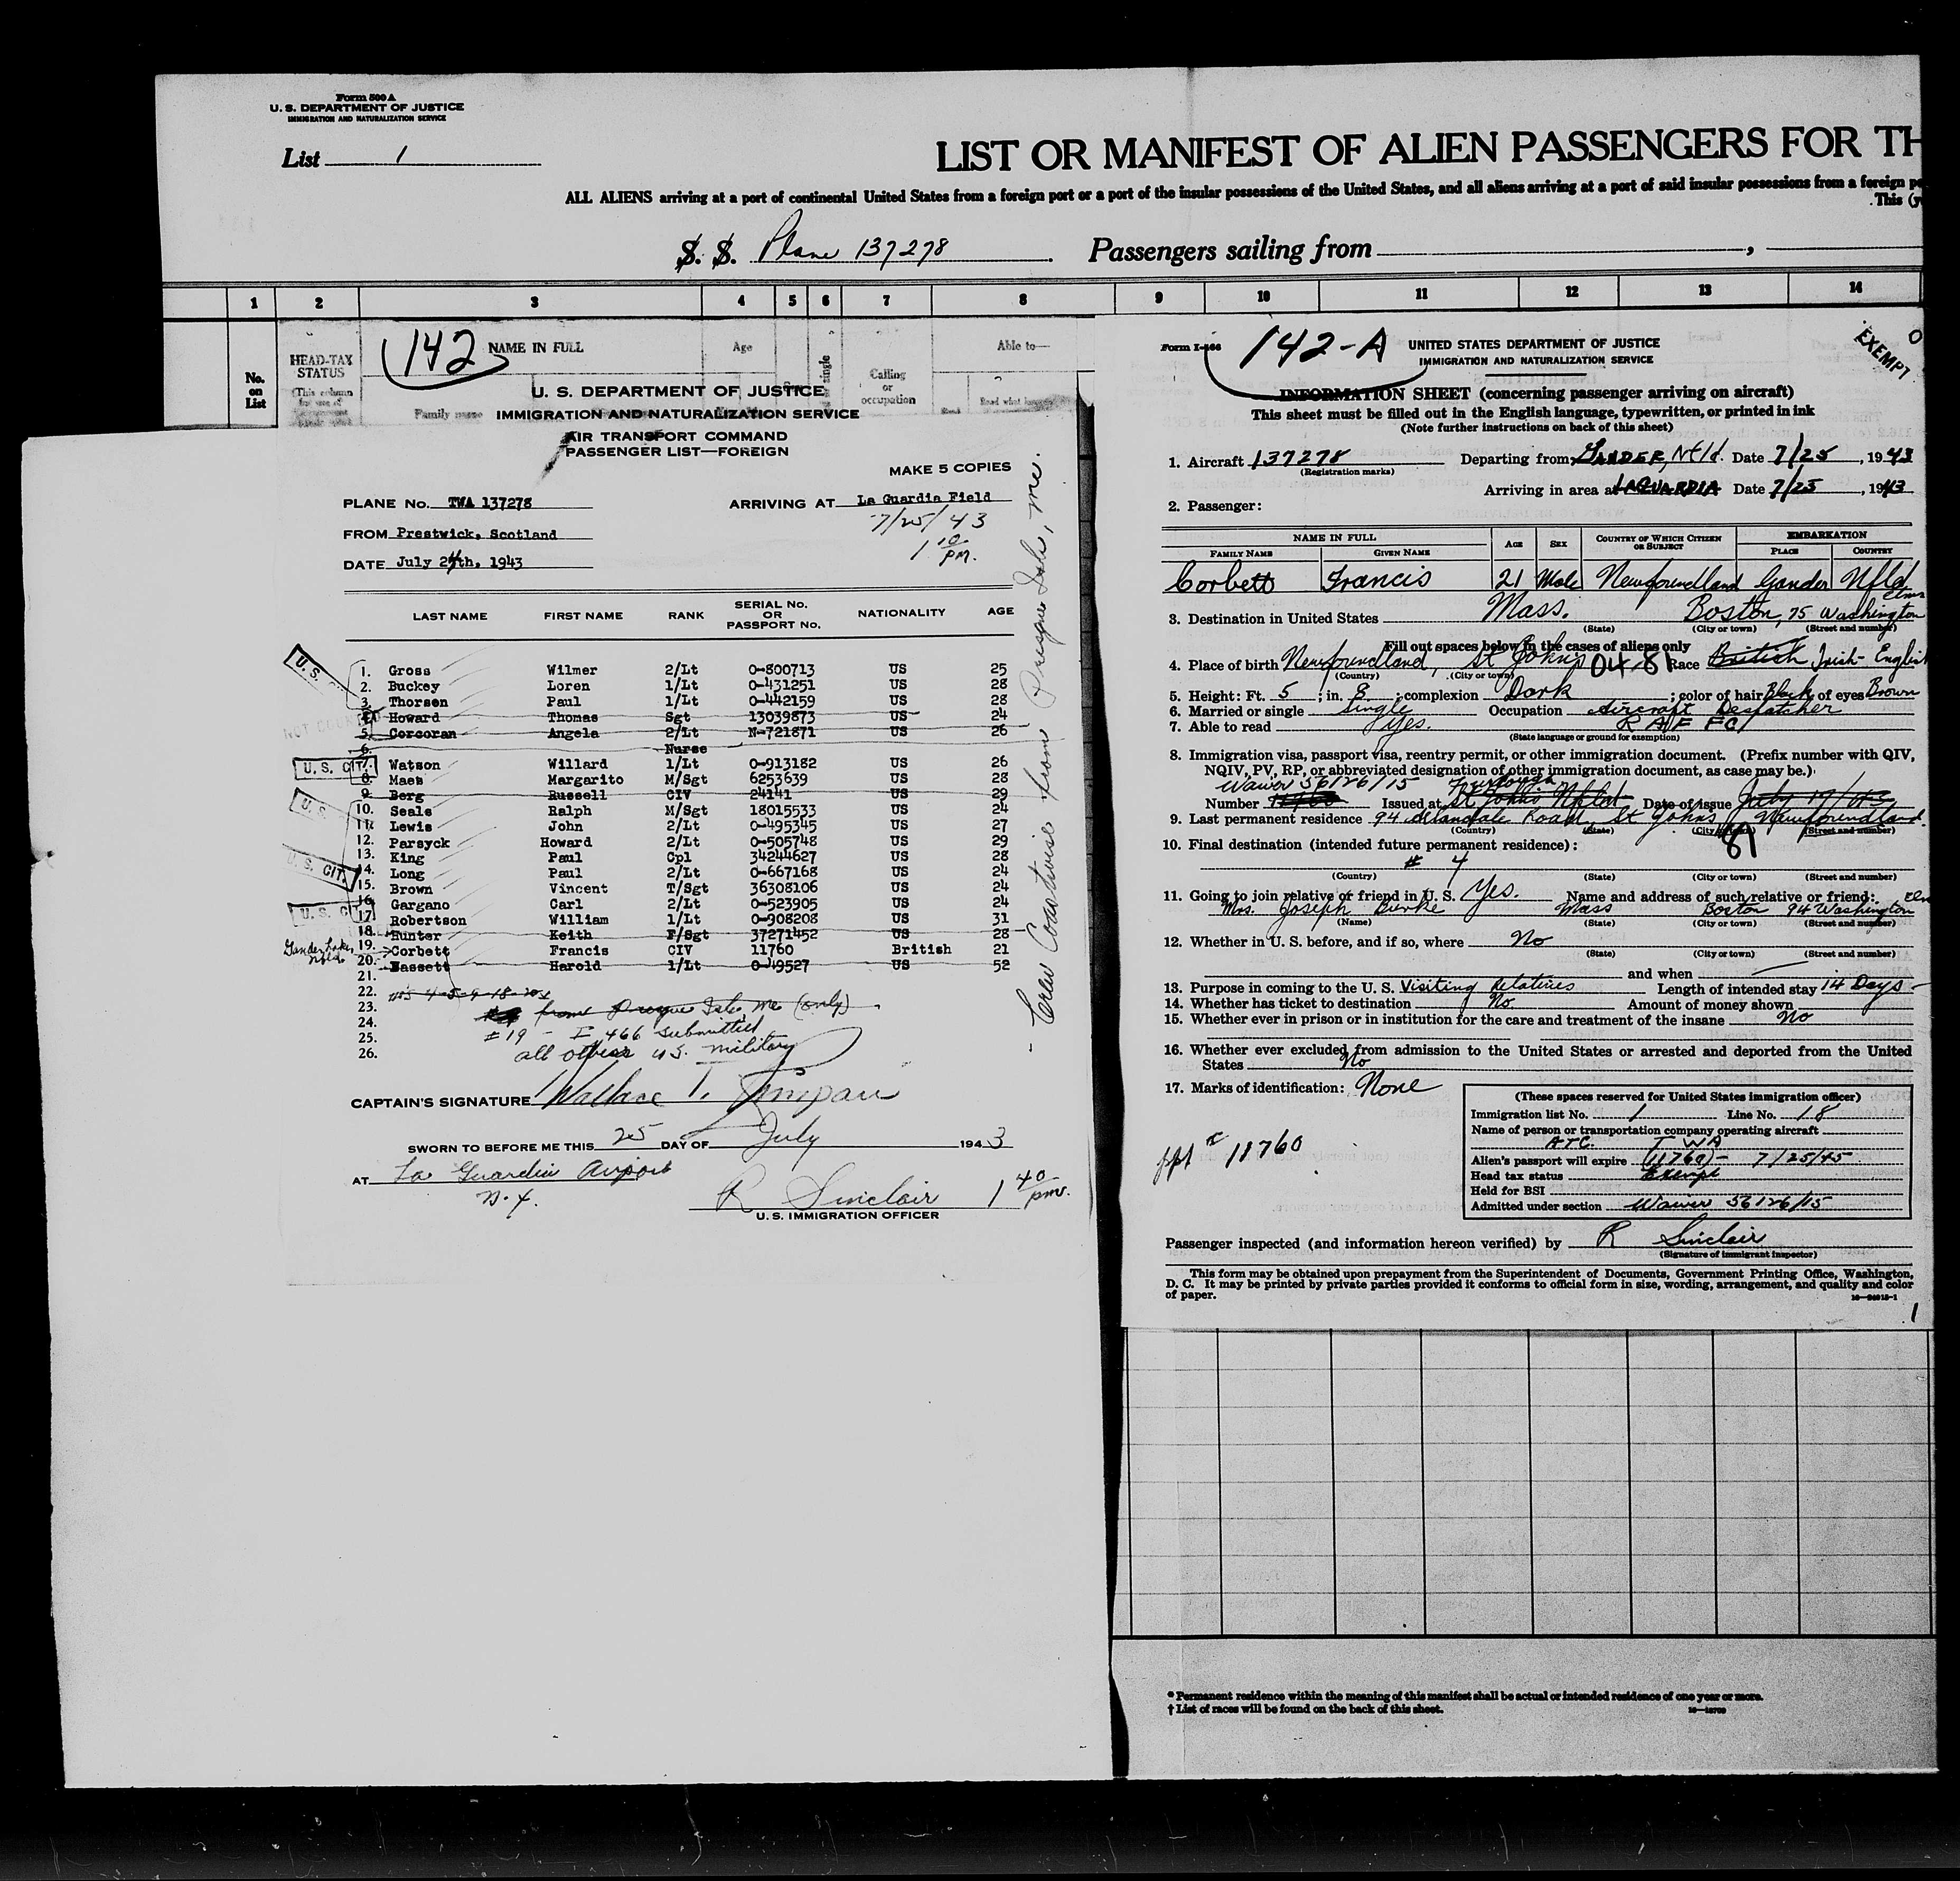 Form 500 A
U. S. DEPARTMENT OF JUSTICE
IMMIGRATION AND NATURALIZATION SERVICE
List 1
LIST OR MANIFEST OF ALIEN PASSENGERS FOR TH
ALL ALIENS arriving at a port of continental United States from a foreign port or a port of the insular possessions of the United States, and all aliens arriving at a port of said insular possessions from a foreign po
This (y
S. S. Plane 137278 Passengers sailing from ,
1 2 3 4 5 6 7 8 9 10 11 12 13 14
No. on List
HEAD-TAX STATUS
(This column
142
NAME IN FULL
Age
single
Calling or occupation
Able to—
Read
Read what
Family name
U. S. DEPARTMENT OF JUSTICE
IMMIGRATION AND NATURALIZATION SERVICE
AIR TRANSPORT COMMAND
PASSENGER LIST—FOREIGN
MAKE 5 COPIES
PLANE No. TWA 137278 ARRIVING AT La Guardia Field
7/25/43
FROM Prestwick, Scotland
1 10 PM.
DATE July 24th, 1943
LAST NAME FIRST NAME RANK SERIAL No. OR PASSPORT No. NATIONALITY AGE
1. Gross Wilmer 2/Lt 0-800713 US 25
2. Buckey Loren 1/Lt 0-431251 US 28
3. Thorsen Paul 1/Lt 0-442159 US 28
4. Howard Thomas Sgt 13039873 US 24
5. Corcoran Angela 2/Lt N-721871 US 26
6. Nurse
7. Watson Willard 1/Lt 0-913182 US 26
8. Maes Margarito M/Sgt 6253639 US 28
9. Berg Russell CIV 24141 US 29
10. Seals Ralph M/Sgt 18015533 US 24
11. Lewis John 2/Lt 0-495345 US 27
12. Parsyck Howard 2/Lt 0-505748 US 29
13. King Paul Cpl 34244627 US 28
14. Long Paul 2/Lt 0-667168 US 24
15. Brown Vincent T/Sgt 36308106 US 24
16. Gargano Carl 2/Lt 0-523905 US 24
17. Robertson William 1/Lt 0-908208 US 31
18. Hunter Keith F/Sgt 37271452 US 28
19. Corbett Francis CIV 11760 British 21
20. Bassett Harold 1/Lt 0-49527 US 52
21.
22. #'s 4-5-9-18-20
23. from Presque Isle, Me (only)
24.
25. #19 - I 466 submitted
26. all others U.S. military
U. S.
U. S. CIT.
U. S.
U. S. CIT.
U. S. CIT.
Gander Lake, Nfld.
- Crew Coastwise from Presque Isle, Me.
CAPTAIN'S SIGNATURE Wallace T.
SWORN TO BEFORE ME THIS 25 DAY OF July 1943
AT La Guardia Airport
N.Y.
R Sinclair 1 40 pm.
U. S. IMMIGRATION OFFICER
Form I-466
142-A
UNITED STATES DEPARTMENT OF JUSTICE
IMMIGRATION AND NATURALIZATION SERVICE
EXEMPT
INFORMATION SHEET (concerning passenger arriving on aircraft)
This sheet must be filled out in the English language, typewritten, or printed in ink
(Note further instructions on back of this sheet)
1. Aircraft 137278 Departing from GANDER, Nfld. Date 7/25, 1943
(Registration marks)
Arriving in area at LAGUARDIA Date 7/25, 1943
2. Passenger:
NAME IN FULL AGE SEX COUNTRY OF WHICH CITIZEN OR SUBJECT EMBARKATION
FAMILY NAME GIVEN NAME PLACE COUNTRY
Corbett Francis 21 Male Newfoundland Gander Nfld
3. Destination in United States Mass. Boston, 75 Washington Elms
(State) (City or town) (Street and number)
Fill out spaces below in the cases of aliens only
4. Place of birth Newfoundland, St John's 04-81 Race British Irish-English
(Country) (City or town)
5. Height: Ft. 5; in. 8; complexion Dark; color of hair Black of eyes Brown
6. Married or single Single Occupation Aircraft Despatcher
7. Able to read Yes. R A F F C
(State language or ground for exemption)
8. Immigration visa, passport visa, reentry permit, or other immigration document. (Prefix number with QIV,
NQIV, PV, RP, or abbreviated designation of other immigration document, as case may be.)
Waiver 56126/15
Number Issued at St Johns Nfld Date of issue July 19/43
9. Last permanent residence 94 Allandale Road, St Johns Newfoundland.
(Country) (State) (City or town) (Street and number)
81
10. Final destination (intended future permanent residence):
# 4
(Country) (State) (City or town) (Street and number)
11. Going to join relative or friend in U. S. Yes. Name and address of such relative or friend:
Mrs. Joseph Burke Mass Boston 94 Washington Elm
(Name) (State) (City or town) (Street and number)
12. Whether in U. S. before, and if so, where No
(State) (City or town) (Street and number)
and when
13. Purpose in coming to the U. S. Visiting Relatives Length of intended stay 14 Days
14. Whether has ticket to destination No Amount of money shown
15. Whether ever in prison or in institution for the care and treatment of the insane No
16. Whether ever excluded from admission to the United States or arrested and deported from the United
States No
17. Marks of identification: None
ppt # 11760
(These spaces reserved for United States immigration officer)
Immigration list No. 1 Line No. 18
Name of person or transportation company operating aircraft
ATC. TWA
Alien's passport will expire (11760) - 7/25/45
Head tax status Exempt
Held for BSI
Admitted under section Waiver 56126/15
Passenger inspected (and information hereon verified) by R Sinclair
(Signature of immigrant inspector)
This form may be obtained upon prepayment from the Superintendent of Documents, Government Printing Office, Washington,
D. C. It may be printed by private parties provided it conforms to official form in size, wording, arrangement, and quality and color
of paper.
1
* Permanent residence within the meaning of this manifest shall be actual or intended residence of one year or more.
† List of races will be found on the back of this sheet.